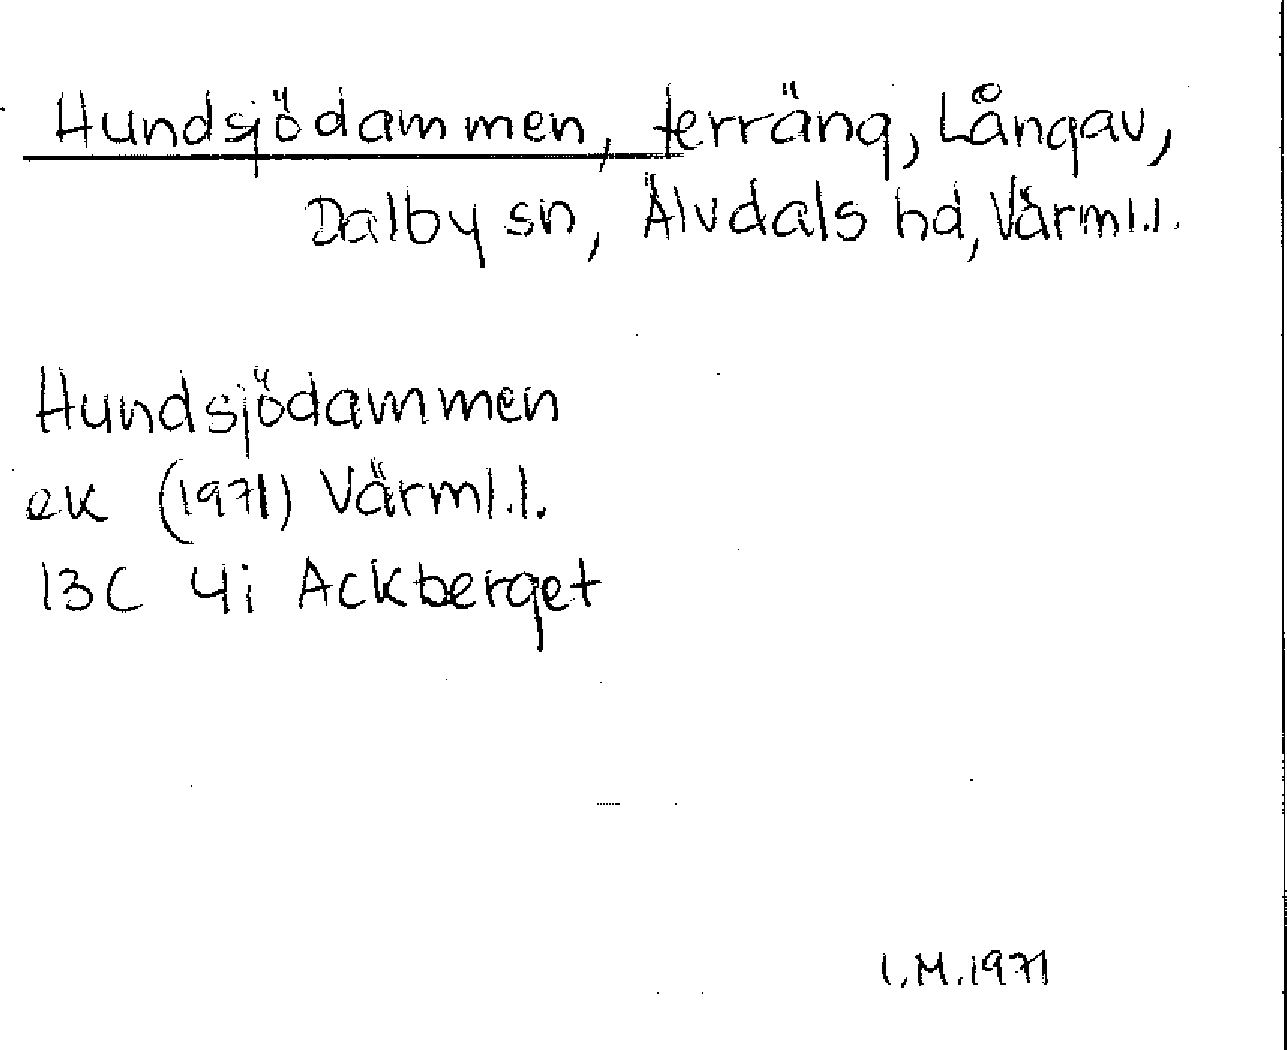 Hundsjödammen, terräng, Långav,
Dalby sn, Älvdals hd, Värml.l.
Hundsjödammen
ek (1971) Värml.l.
13C 4i Ackberget
I.M.1971